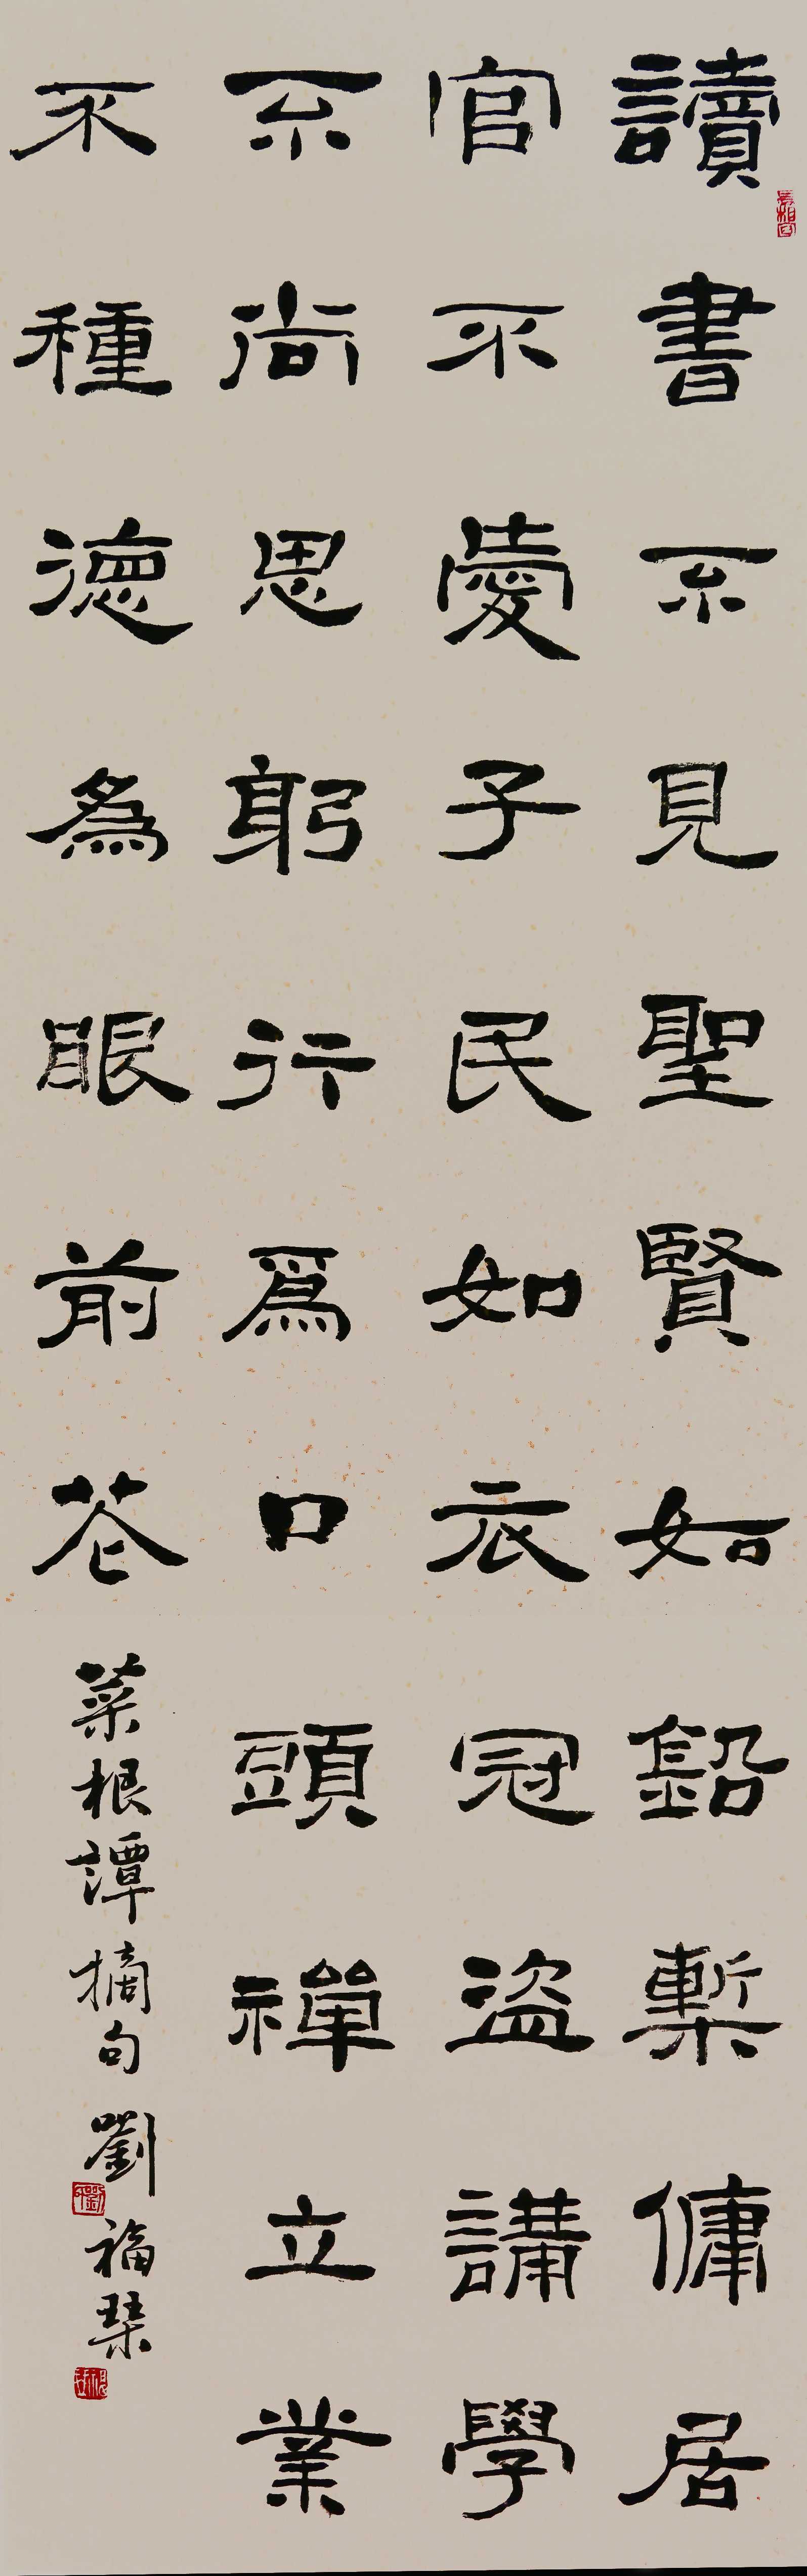 讀書不見聖賢如鉛槧傭居
官不愛子民如衣冠盜講學
不尚思躬行為口頭禪立業
不種德為眼前花
菜根譚摘句劉福琹